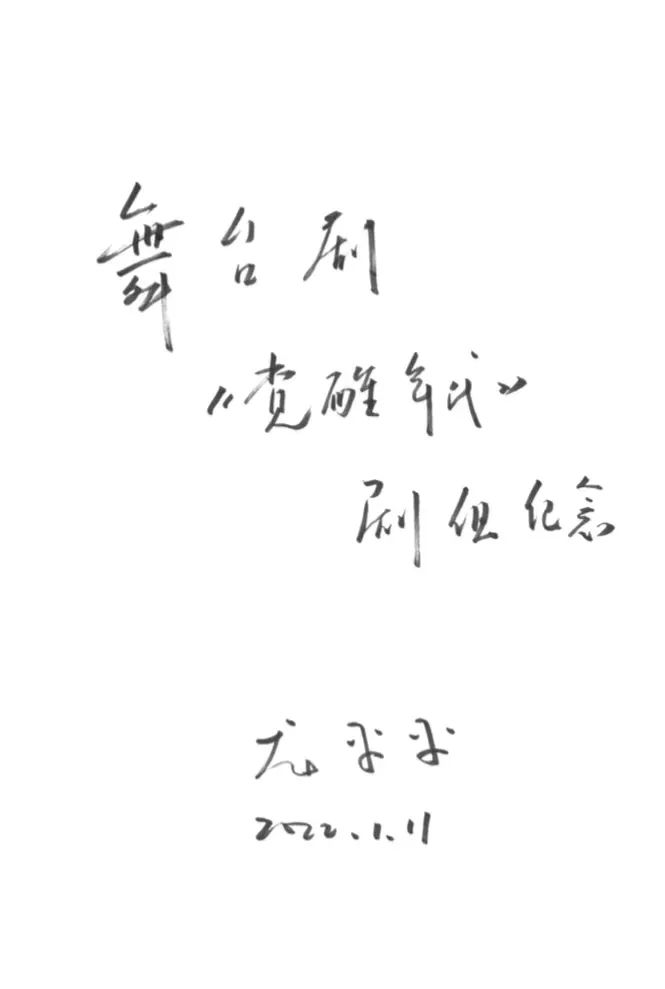 舞台剧
《觉醒年代》
剧组纪念
龙平平
2022.1.11